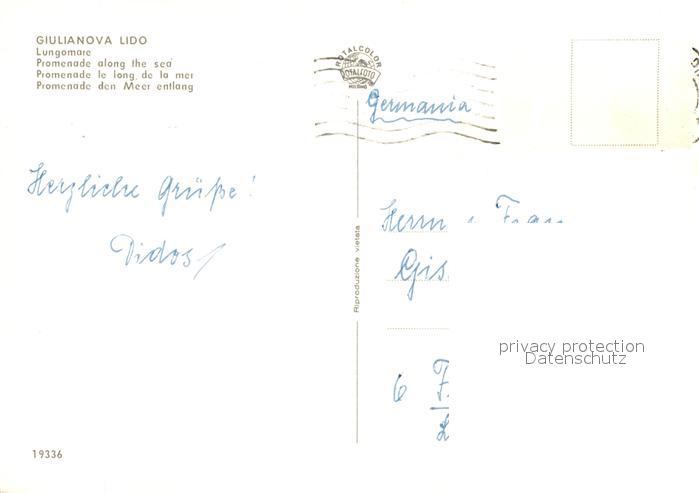 GIULIANOVA LIDO
Lungomare
Promenade along the sea
Promenade le long de la mer
Promenade den Meer entlang
ROTALCOLOR
ROTALFOTO
MILANO
Germania
Herzliche Grüße!
Didos
Riproduzione vietata
Herrn
6
privacy protection
Datenschutz
19336